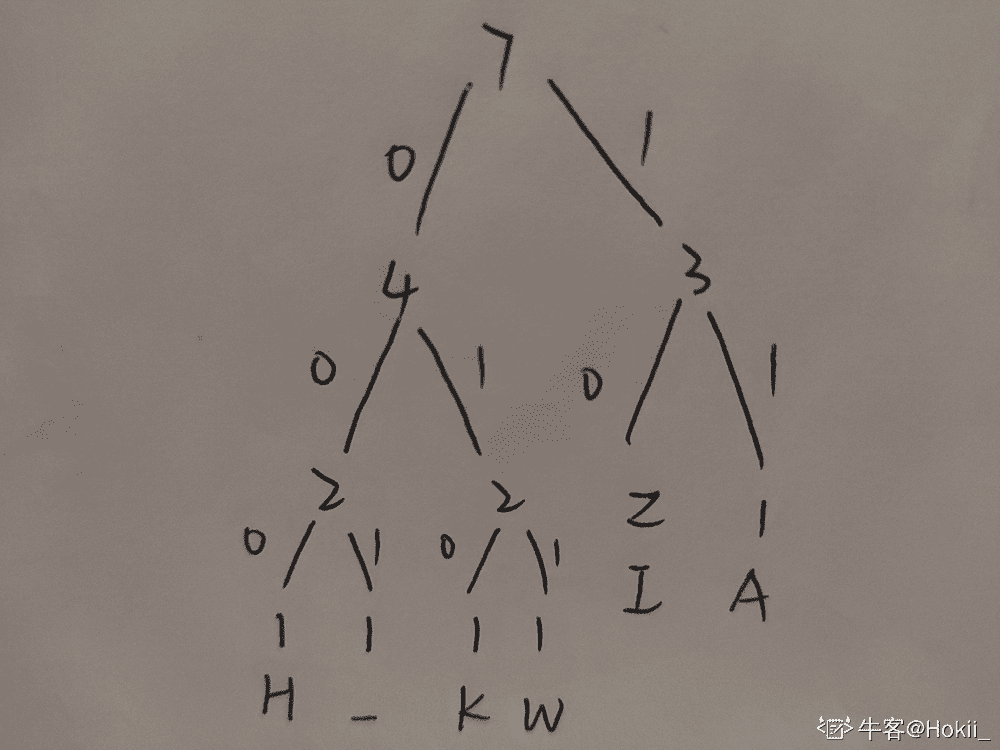 7
0 1
4 3
0 1 0 1
2 2 2 1
0 1 0 1 I A
1 1 1 1
H _ K W
牛客@Hokii_